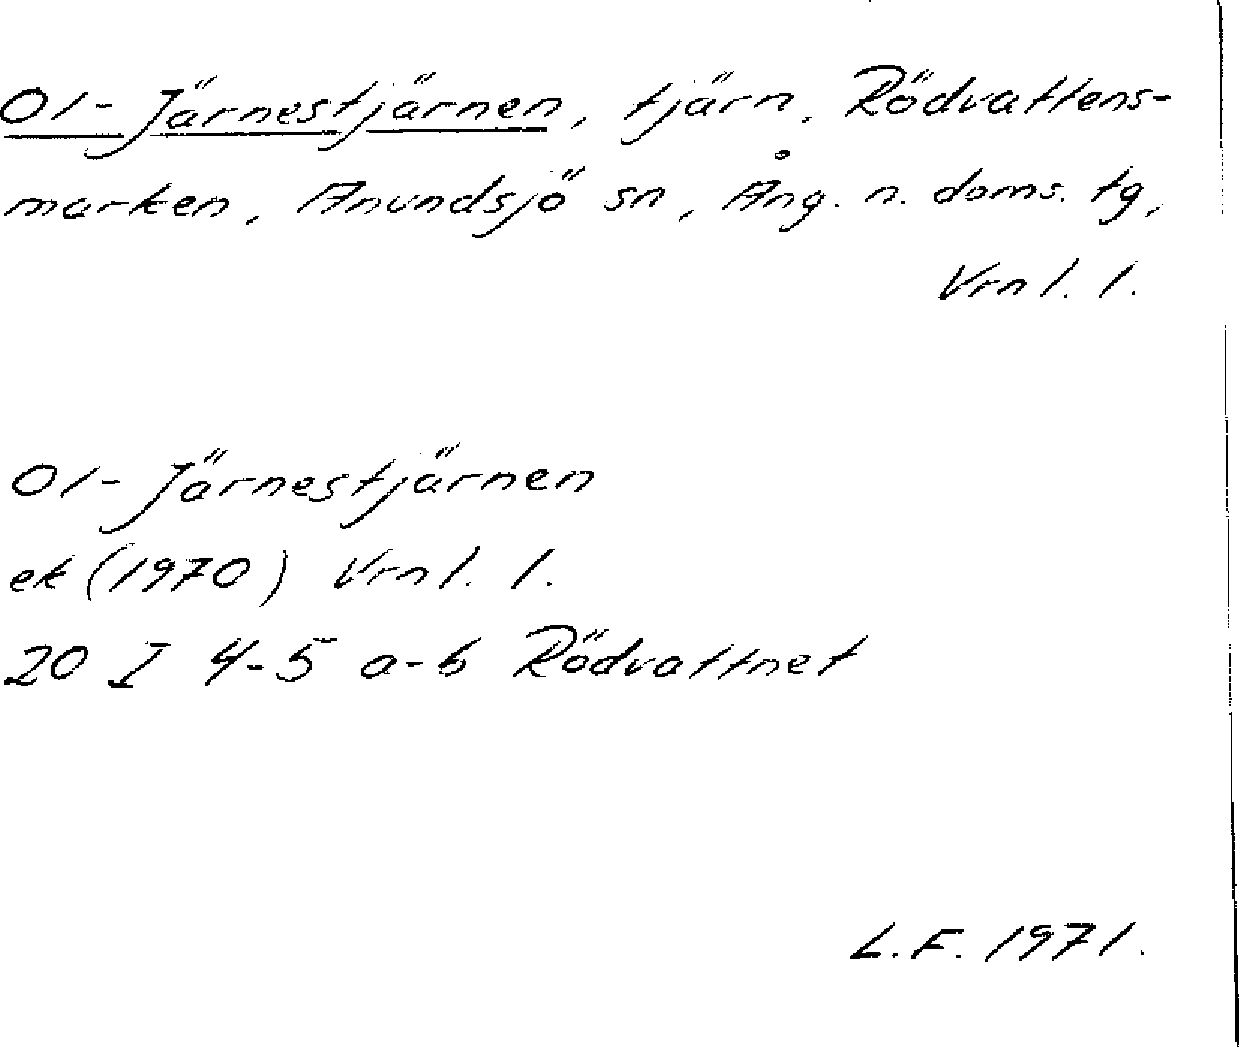 Ol-Järnestjärnen, tjärn, Rödvattens-
marken, Anundsjö sn, Ång. n. doms. tg,
Vrnl. l.
Ol-Järnestjärnen
ek (1970) Vrnl. l.
20 I 4-5 a-b Rödvattnet
L.F. 1971.